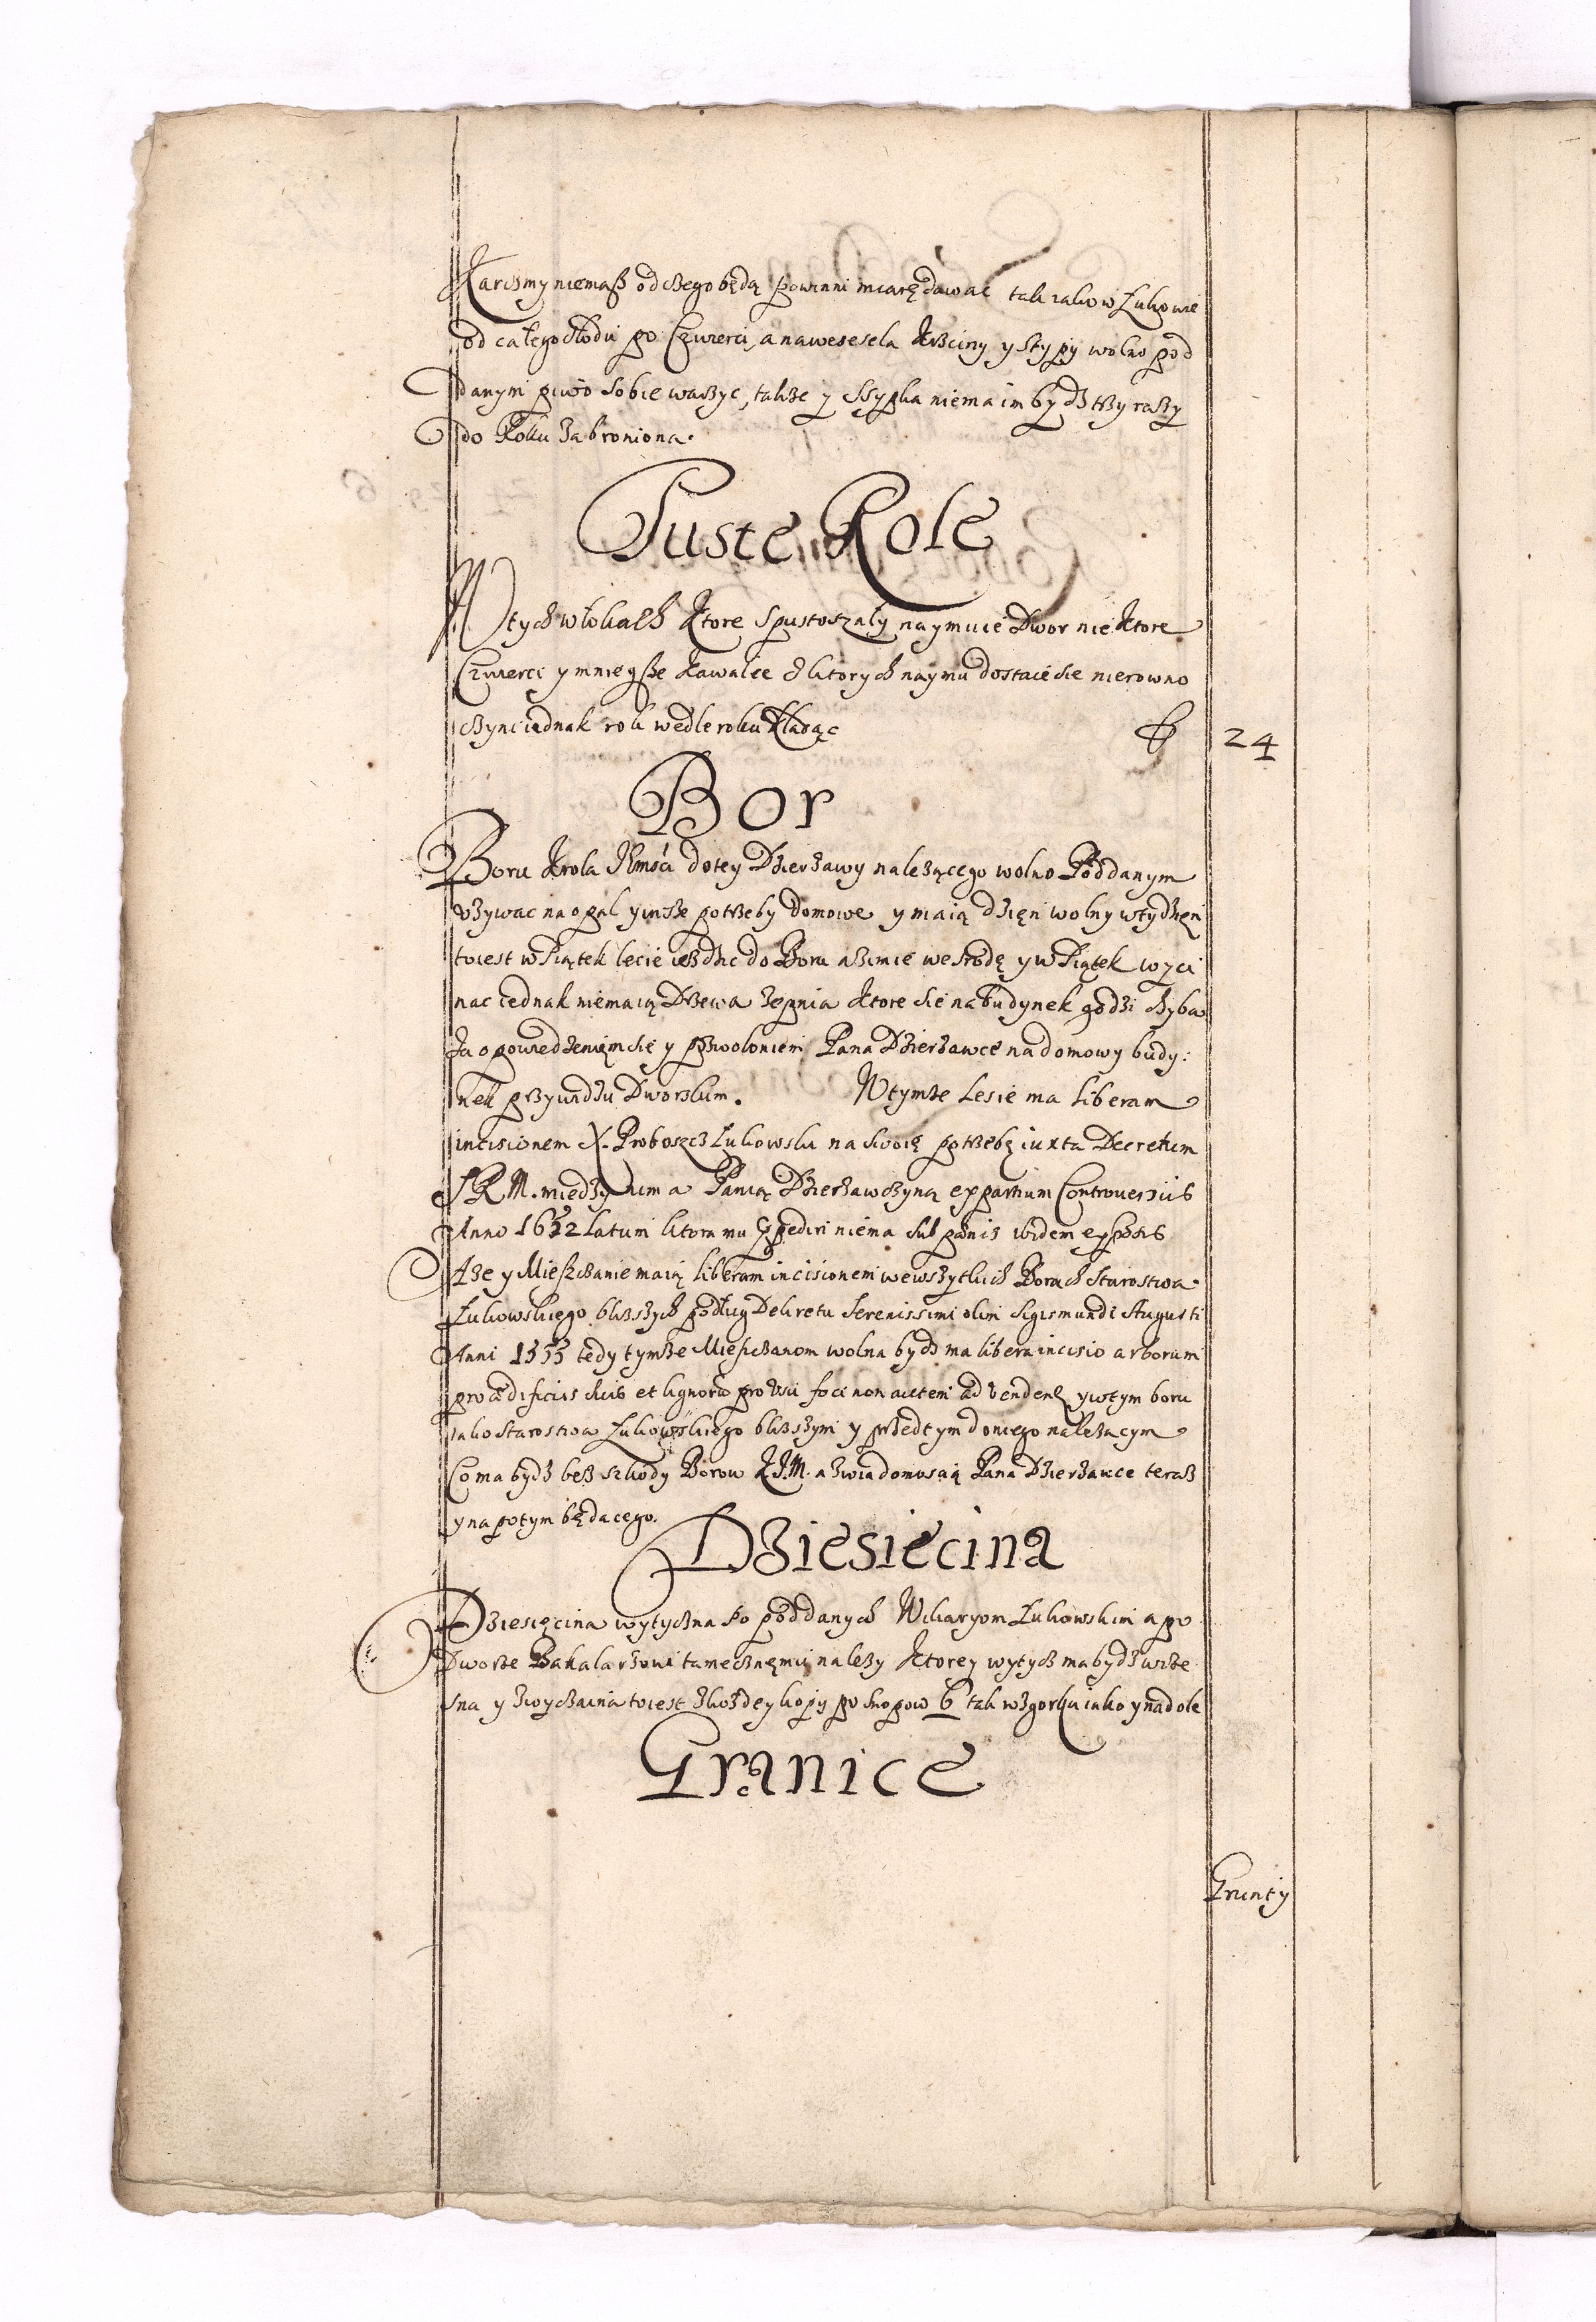 Karczmy niemasz od czego będą powinni miarę dawac tak iako w Łukowie
od całego słodu po Czwierci, a na wesesela Krzciny y Stypy wolno pod
danym piwo sobie warzyc, takze y Ssypka niema im bydz trzy razy
do Roku zabroniona.
Puste Role
W tych włokach Ktore spustoszały naymuie Dwor nie Ktore
Czwierci y mnieysze Kawalce z ktorych naymu dostaie sie nierowno
czyni iednak rok wedle roku Kładąc f 24
Bor
Boru Krola JEmści do tey Dzierzawy nalezącego wolno Poddanym
vzywac na opał y insze potrzeby domowe y maią dzięn wolny w tydzięn
to iest w Piątek lecie iezdzic do Boru a zimie we srodę y w Piątek wyci
nac iednak niemaią Drzewa zepnia Ktore sie na budynek godzi chyba
za opowiedzenięm się y pozwoloniem Pana Dzierzawce na domowy budy:
nek przy urzędu Dworskim. W tymze Lesie ma liberam
incisionem X. Proboszcz Łukowski na swoię potrzebę iuxta Decretum
S R M. między nim a Panią Dzierzawczyną ex partium Controuersiis
Anno 1632 latum ktora mu Expediri niema sub pœnis ibidem expressis
Aze y Mieszczanie maią liberam incisionem we wszytkich Borach Starostwa
Łukowskiego blizszych podług Dekretu Serenissimi olim Sigismundi Augusti
Anni 1555 tedy tymze Mieszczanom wolna bydz ma libera incisio arborum
pro ædificiis suis et lignorũ pro vsu foci non autem ad vendenđ y w tym boru
iako Starostwa Łukowskiego blizszym y przedtym do niego nalezacym
Co ma bydz bez szkody Borow K J. M. a zwiadomoscią Pana Dzierzawce teraz
y na potym będacego.
Dziesiecina
Dziesięcina wytyczna po poddanych Wikaryom Łukowskim a po
Dworze Bakalarzowi tamecznęmu nalezy Ktorey wytycz ma bydz wrze
sna y zwyczaina to iest z kozdey kopy po snopow 6 tak w zgorku iako y na dole
Granice
Grunty